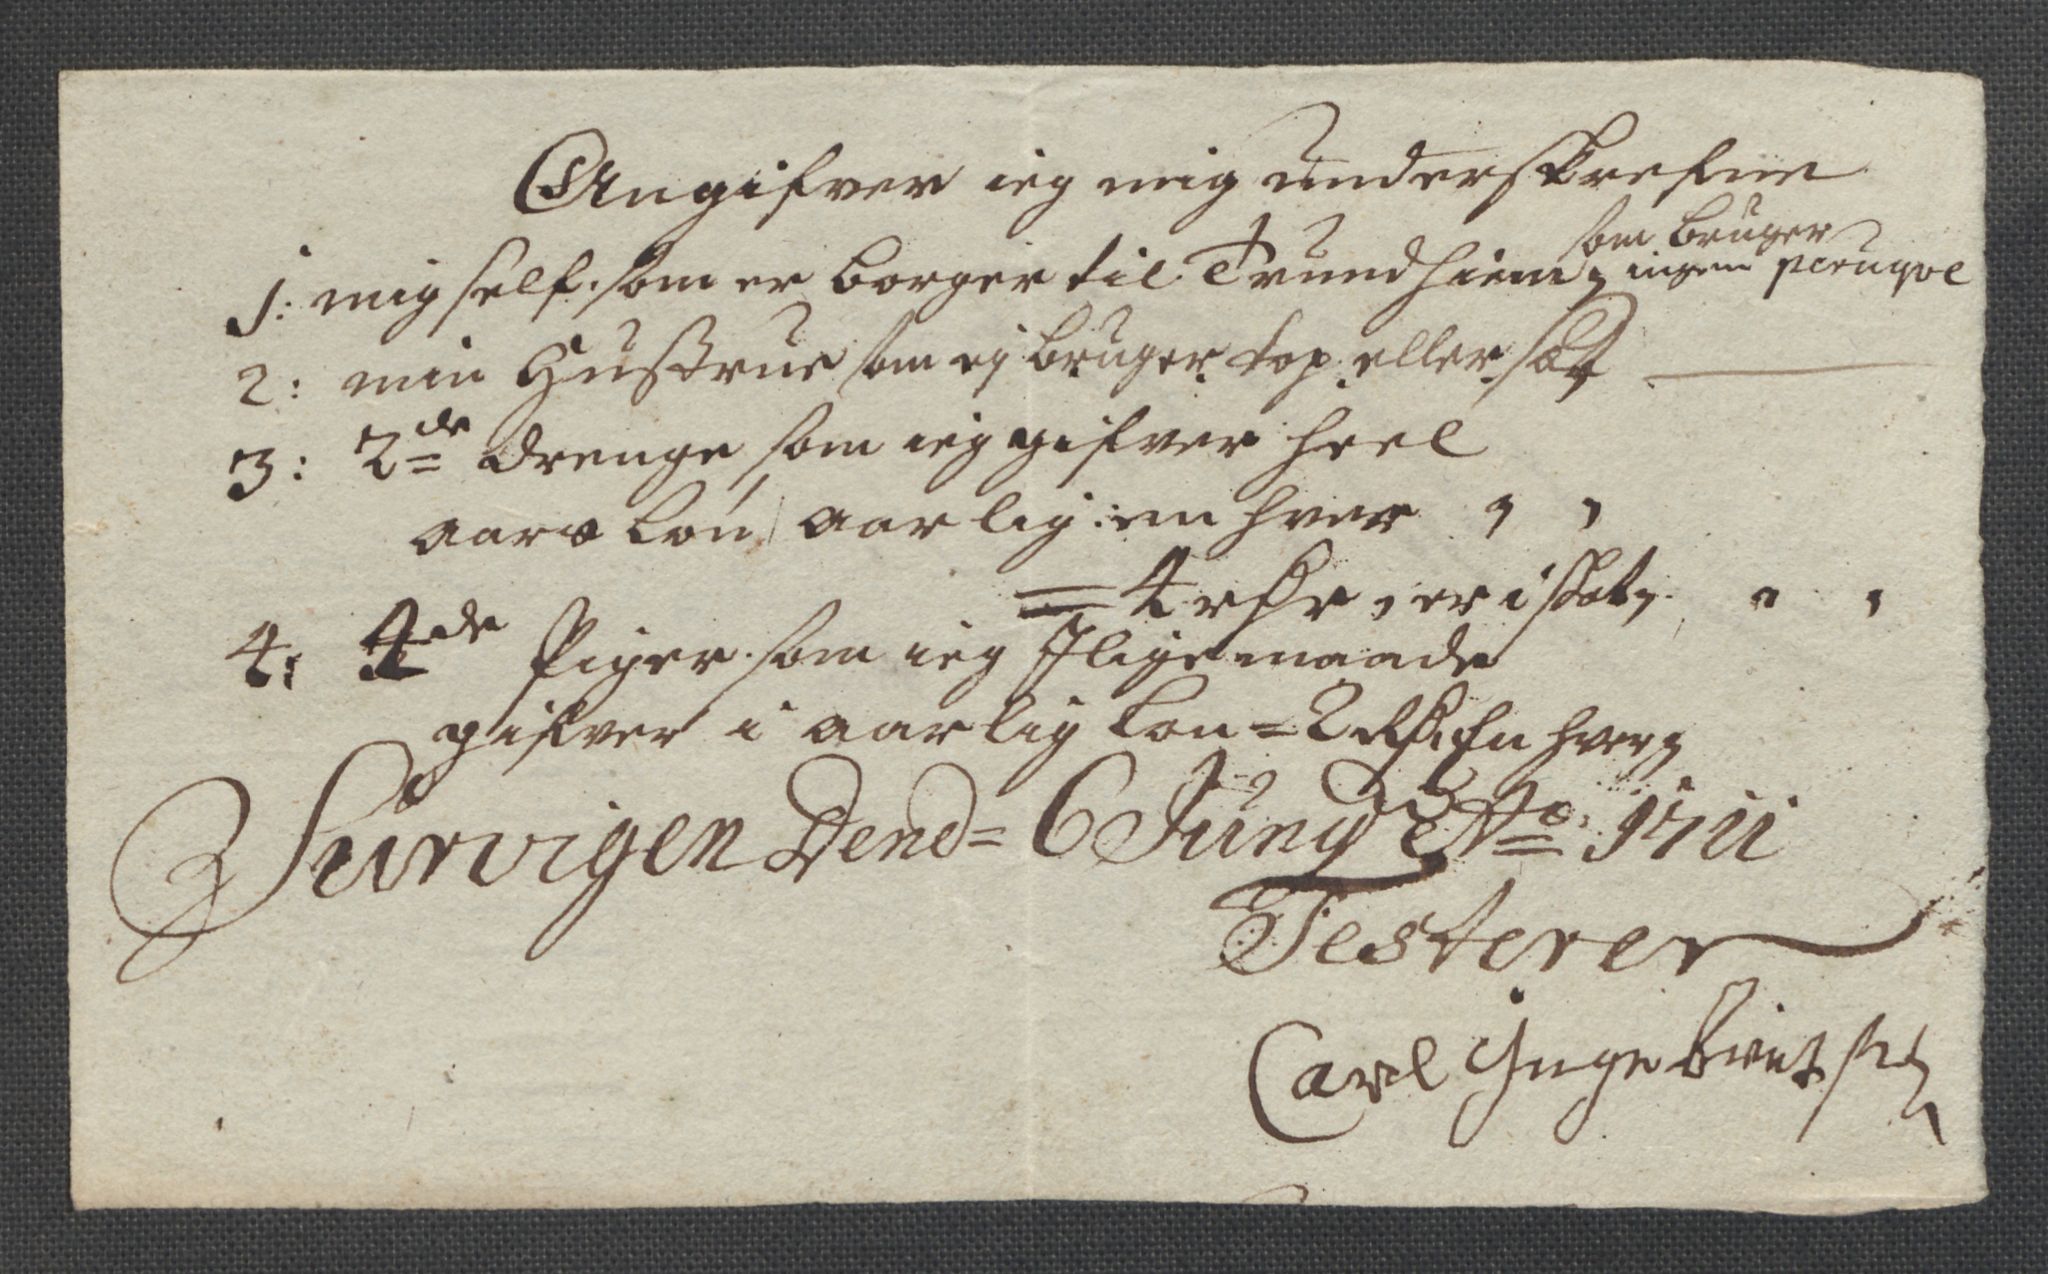 Angifver ieg mig underskrefne
som bruger
1: mig self. som er borger til Trundhiem, ingen peruqve
2: min Hustrue som ej bruger top eller sæt
3: 2de drenge som ieg gifver heel
aars løn aarlig: en hver
= 4 rdr, er i skat,
4: 4de Piger som ieg Jligemaade
gifver i aarlig løn = 2 rdr En hver,
Survigen Dend = 6 Junÿ Ao: 1711
Testerer
Carl Ingebretsen